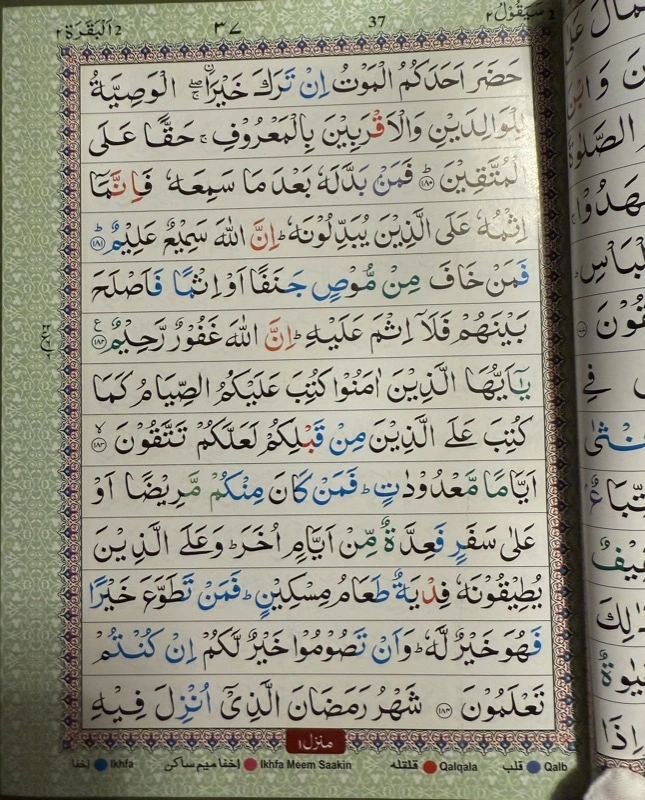 سَيَقُوْلُ ٢
37
٣٧
2 اَلْبَقَرَة ٢
حَضَرَ اَحَدَكُمُ الْمَوْتُ اِنْ تَرَكَ خَيْرَاۖۚ اۨلْوَصِيَّةُ
لِلْوَالِدَيْنِ وَالْاَقْرَبِيْنَ بِالْمَعْرُوْفِۚ حَقًّا عَلَى
الْمُتَّقِيْنَؕ ﴿١٨٠﴾ فَمَنْۢ بَدَّلَهٗ بَعْدَ مَا سَمِعَهٗ فَاِنَّمَاۤ
اِثْمُهٗ عَلَى الَّذِيْنَ يُبَدِّلُوْنَهٗؕ اِنَّ اللّٰهَ سَمِيْعٌ عَلِيْمٌؕ ﴿١٨١﴾
فَمَنْ خَافَ مِنْ مُّوْصٍ جَنَفًا اَوْ اِثْمًا فَاَصْلَحَ
بَيْنَهُمْ فَلَاۤ اِثْمَ عَلَيْهِؕ اِنَّ اللّٰهَ غَفُوْرٌ رَّحِيْمٌ ﴿١٨٢﴾
يٰۤاَيُّهَا الَّذِيْنَ اٰمَنُوْا كُتِبَ عَلَيْكُمُ الصِّيَامُ كَمَا
كُتِبَ عَلَى الَّذِيْنَ مِنْ قَبْلِكُمْ لَعَلَّكُمْ تَتَّقُوْنَۙ ﴿١٨٣﴾
اَيَّامًا مَّعْدُوْدٰتٍؕ فَمَنْ كَانَ مِنْكُمْ مَّرِيْضًا اَوْ
عَلٰى سَفَرٍ فَعِدَّةٌ مِّنْ اَيَّامٍ اُخَرَؕ وَعَلَى الَّذِيْنَ
يُطِيْقُوْنَهٗ فِدْيَةٌ طَعَامُ مِسْكِيْنٍؕ فَمَنْ تَطَوَّعَ خَيْرًا
فَهُوَ خَيْرٌ لَّهٗؕ وَاَنْ تَصُوْمُوْا خَيْرٌ لَّكُمْ اِنْ كُنْتُمْ
تَعْلَمُوْنَ ﴿١٨٤﴾ شَهْرُ رَمَضَانَ الَّذِيْۤ اُنْزِلَ فِيْهِ
منزل ١
Qalb قلب Qalqala قلقله Ikhfa Meem Saakin اخفا ميم ساكن Ikhfa اخفا